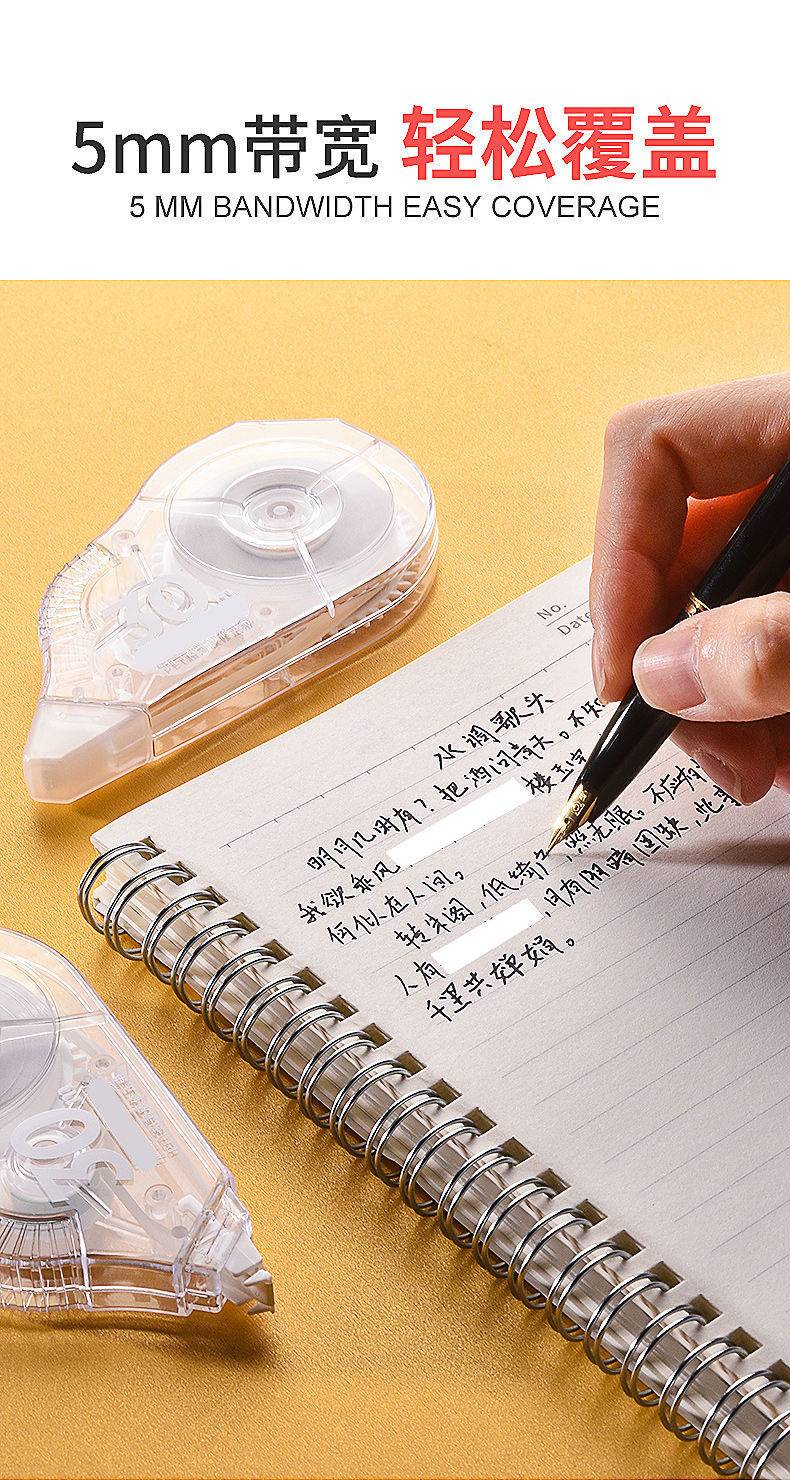 5mm带宽 轻松覆盖
5 MM BANDWIDTH EASY COVERAGE
No.
Date
30
水调歌头
明月几时有？把酒问青天。不知
我欲乘风 楼玉宇
何似在人间。
转朱阁，低绮户，照无眠。不应有
人有 ，月有阴晴圆缺，此事
千里共婵娟。
30